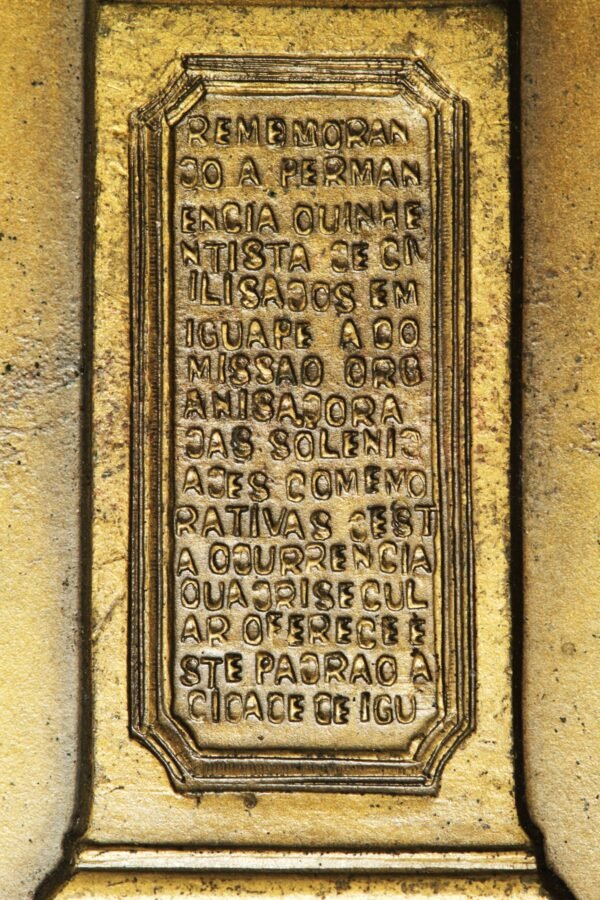 REMEMORAN
DO A PERMAN
ENCIA QUINHE
NTISTA DE CI
ILISADOS EM
IGUAPE A CO
MISSAO ORG
ANISADORA
DAS SOLENID
ADES COMEMO
RATIVAS DEST
A OCURRENCIA
QUADRISECUL
AR OFERECE E
STE PADRAO A
CIDADE DE IGU